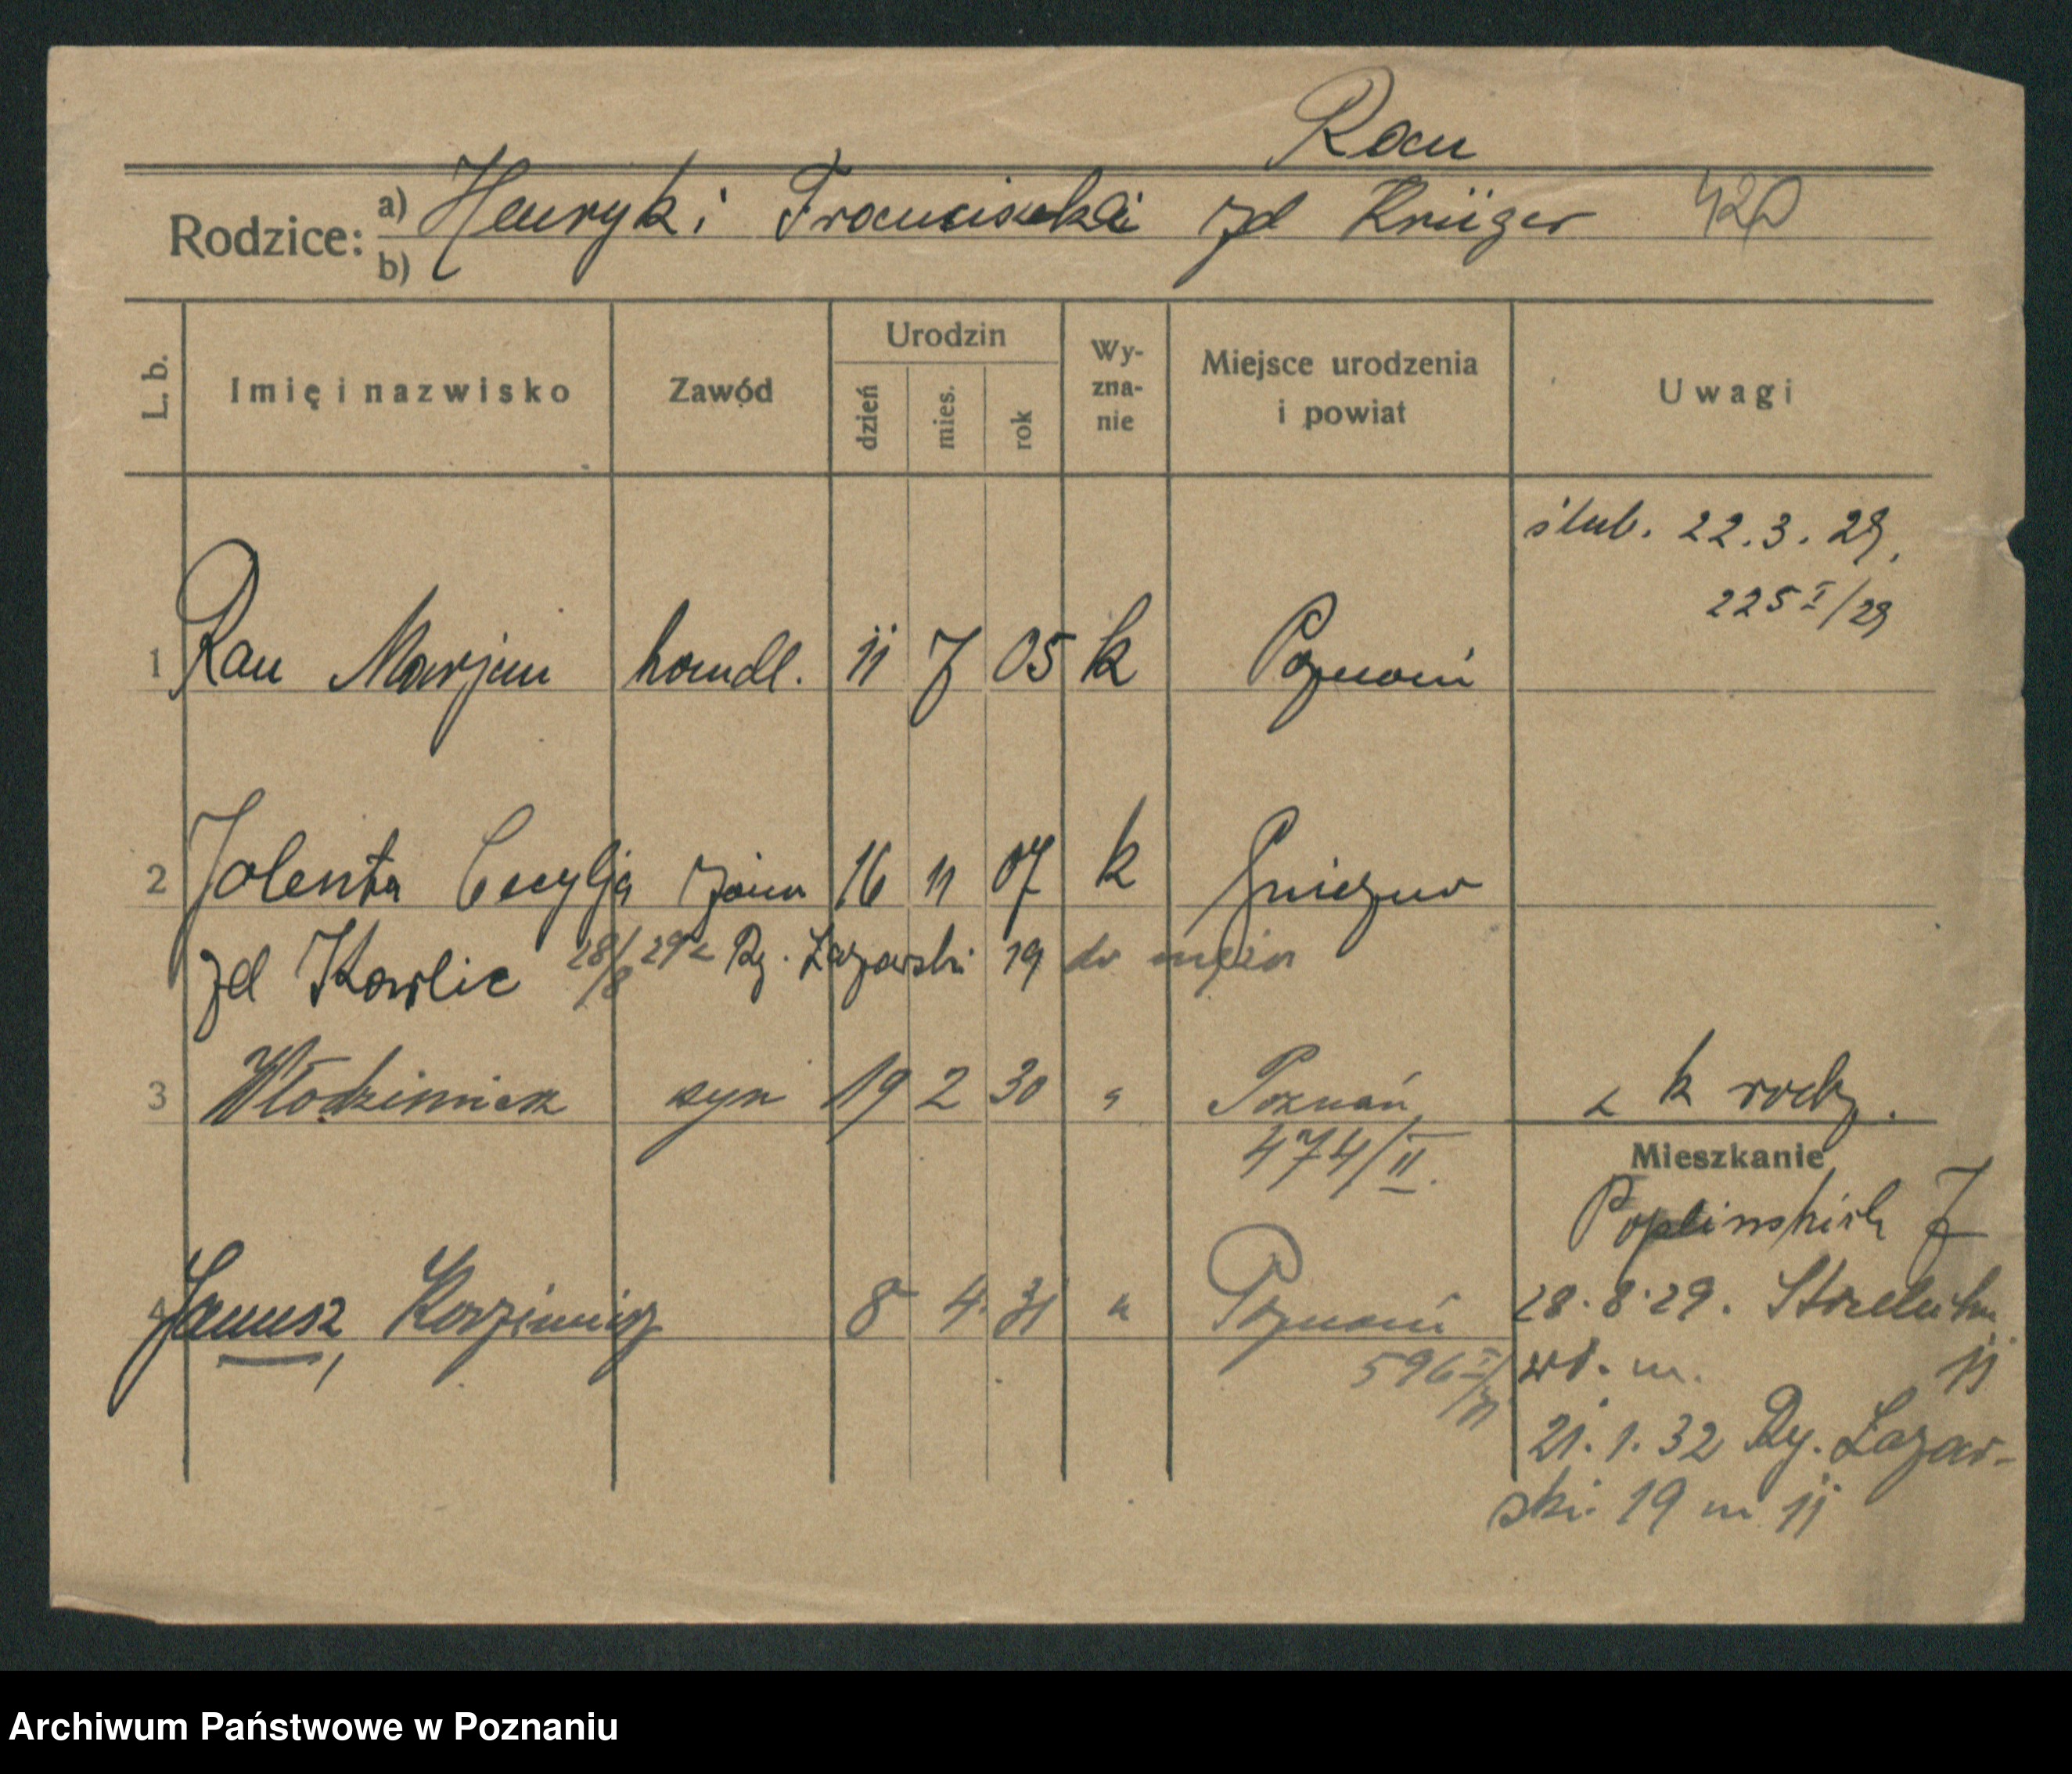 Rau
Rodzice: a) Henryk i Franciszka zd Krüger 420
b)
L. b. Imię i nazwisko Zawód Urodzin dzień mies. rok Wyznanie Miejsce urodzenia i powiat Uwagi
ślub. 22.3.29.
225 I/29
1 Rau Marjan handl. 11 7 05 k Poznań
2 Jolenta Cecylja żona 16 11 07 k Gniezno
zd Karlic 28/8 29 z Ry. Łazarski 19 do męża
3 Włodzimierz syn 19 2 30 " Poznań, z k rodz.
474/II.
Mieszkanie
Poplinskich 7
4 Janusz, Kazimierz 8 4 31 " Poznań
28.8.29.
596 I/31
wł. m. 11
21.1.32 Ry. Łazar-
ski 19 m 11
Archiwum Państwowe w Poznaniu